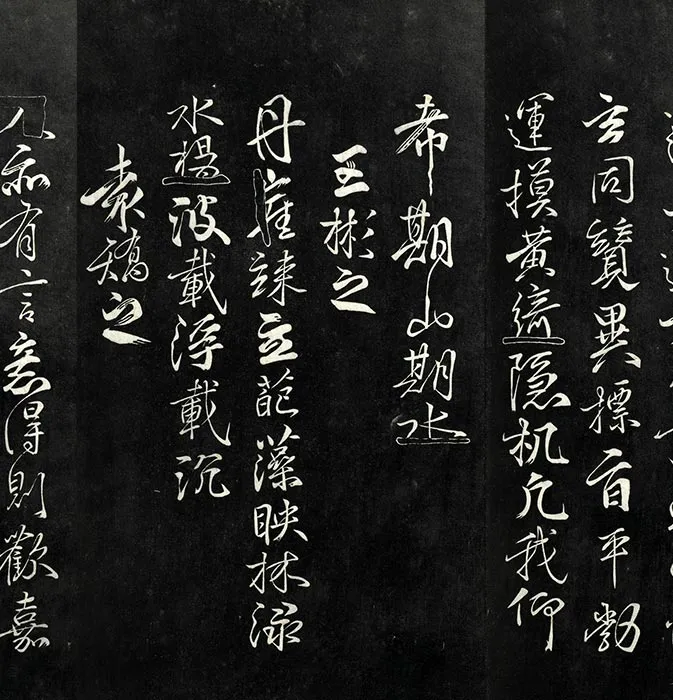 玄同競異標旨平勃
運摸黃綺隐机凡我仰
希期山期水
王彬之
丹崖竦立葩藻映林渌
水揚波載浮載沉
袁矯之
人亦有言意得則歡嘉